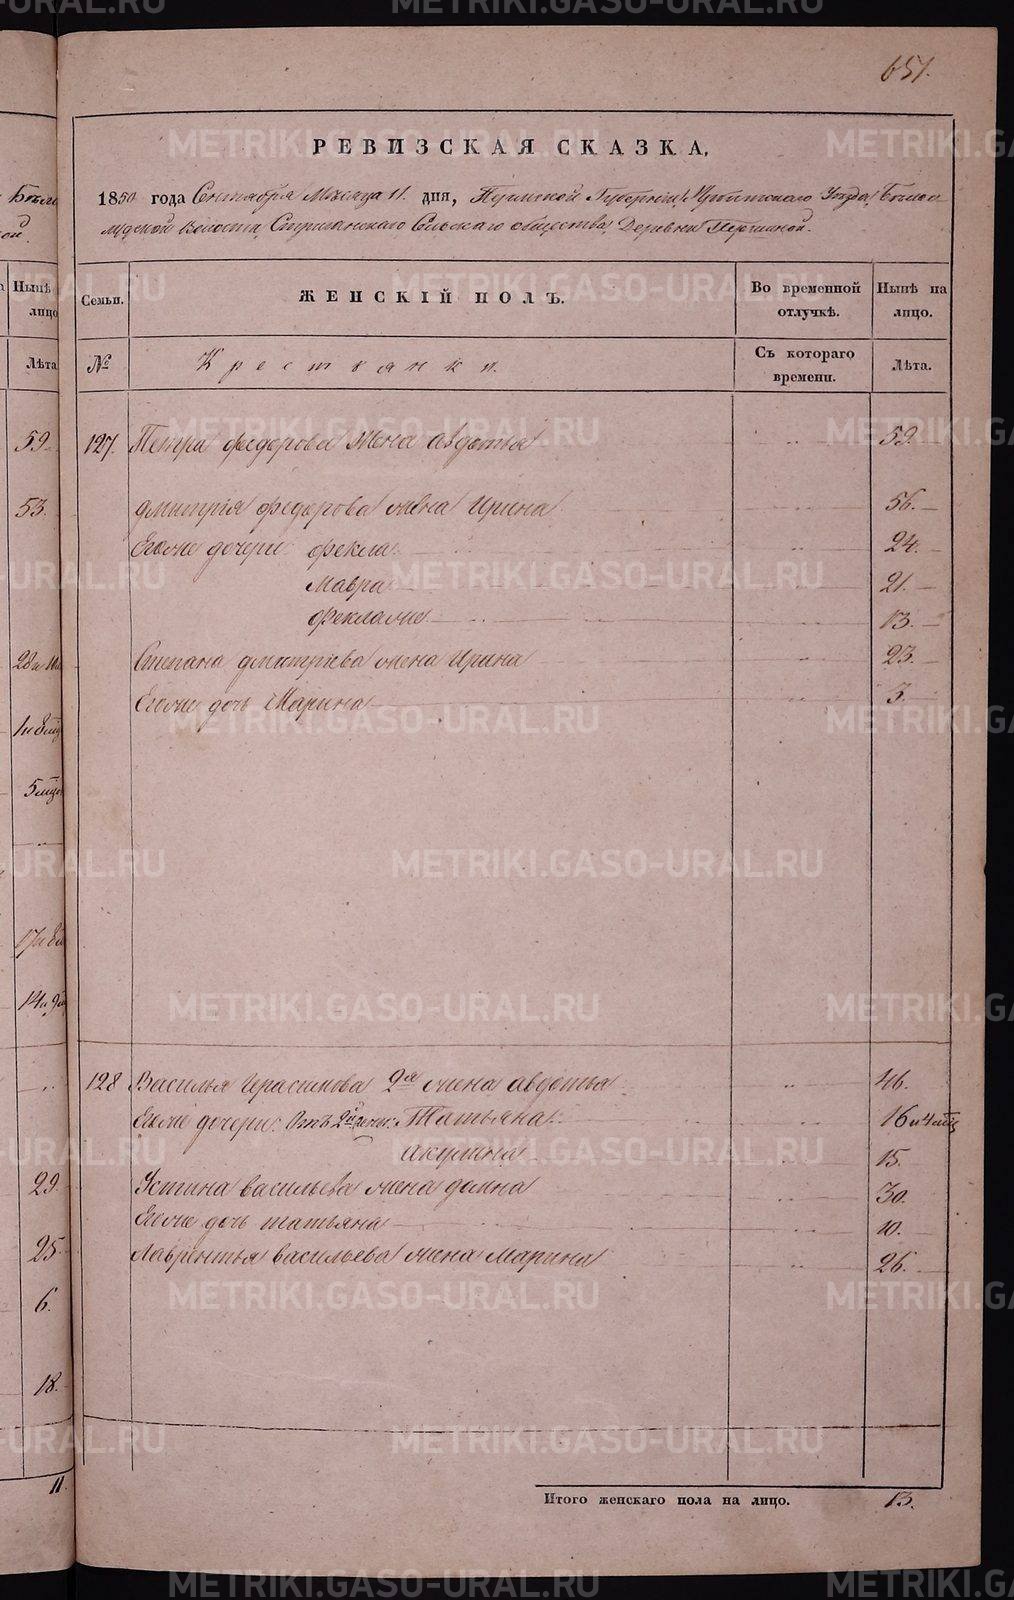 651.
РЕВИЗСКАЯ СКАЗКА,
1850 года Сентября Месяца 11. дня, Пермской Губернии, Ирбитскаго Уезда, Белос
лудской Волости, Стриганскаго Сельскаго общества, Деревни Першиной.
Семьи. ЖЕНСКІЙ ПОЛЪ. Во временной отлучкѣ. Нынѣ на лицо.
№ Крестьянки. Съ котораго времени. Лѣта.
127. Петра федорова жена авдотья 59.
дмитрія федорова жена Ирина 56.
Егоже дочери: фекла 24.
Мавра 21.
фекла же 13.
Степана дмитріева жена Ирина 23.
Егоже дочь Марина 3.
128 Василья Герасимова 2я жена авдотья 46.
Егоже дочери: Отъ 2й жены: Татьяна 16 и 4 мѣс
акулина 15.
Устина васильева жена домна 30.
Егоже дочь татьяна 10.
Лаврентья васильева жена Марина 26.
Итого женскаго пола на лицо. 13.
Нынѣ
лицо
Лѣта
59.
53.
5 мѣс
29.
25.
6.
18.
11.
METRIKI.GASO-URAL.RU